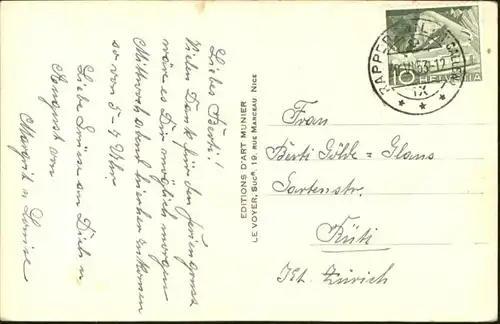 Liebes Berti!
Vielen Dank für den Feriengruss
wäre es Dir möglich morgen
Mittwoch abend hierher zukommen
so von 5 - 7 Uhr.
Liebe Grüsse an Dich u
August von
Margrit u Louise
EDITIONS D'ART MUNIER
LE VOYER, SUCR. 19, RUE MARCEAU NICE
RAPPERSWIL (ST. GALLEN)
53-12
IX
10 HELVETIA
Frau
Berti Göldi = Glaus
Gartenstr.
Rüti
Kt. Zürich